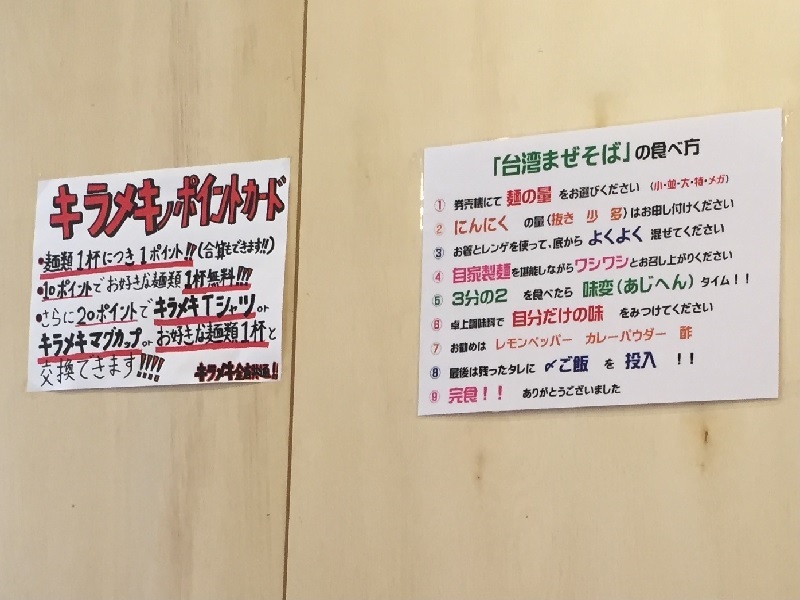 キラメキノポイントカード
・麺類1杯につき1ポイント!!(合算もできます!!)
・10ポイントでお好きな麺類1杯無料!!!!
・さらに20ポイントでキラメキTシャツor
キラメキマグカップorお好きな麺類1杯と
交換できます!!!!
「台湾まぜそば」の食べ方
① 券売機にて 麺の量 をお選びください (小・並・大・特・メガ)
② にんにく の量(抜き 少 多)はお申し付けください
③ お箸とレンゲを使って、底から よくよく 混ぜてください
④ 自家製麺を堪能しながらワシワシとお召し上がりください
⑤ 3分の2 を食べたら 味変(あじへん)タイム!!
⑥ 卓上調味料で 自分だけの味 をみつけてください
⑦ お勧めは レモンペッパー カレーパウダー 酢
⑧ 最後は残ったタレに 〆ご飯 を 投入 !!
⑨ 完食!! ありがとうございました